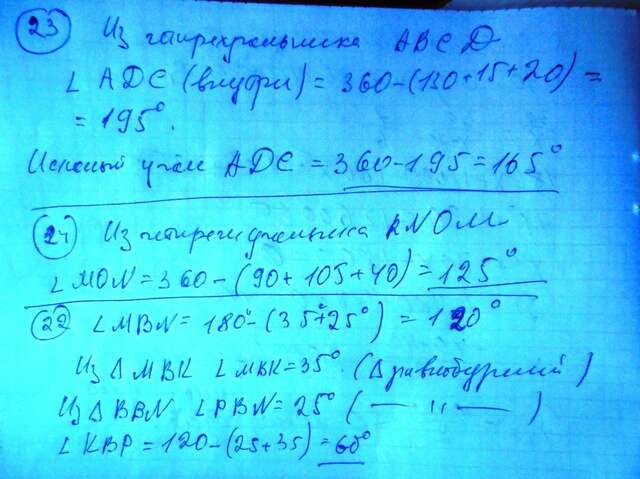 23 Из четырехугольника ABCD
∠ADC (внутри) = 360-(130+15+20) =
= 195°.
Искомый угол ADC = 360-195 = 165°
24 Из четырехугольника KNOM
∠MON = 360-(90+105+40) = 125°
22 ∠MBN = 180°-(35°+25°) = 120°
Из Δ MBK ∠MBK = 35° (Δ равнобедренный)
Из Δ BBN ∠PBN = 25° ( — " — )
∠KBP = 120-(25+35) = 60°